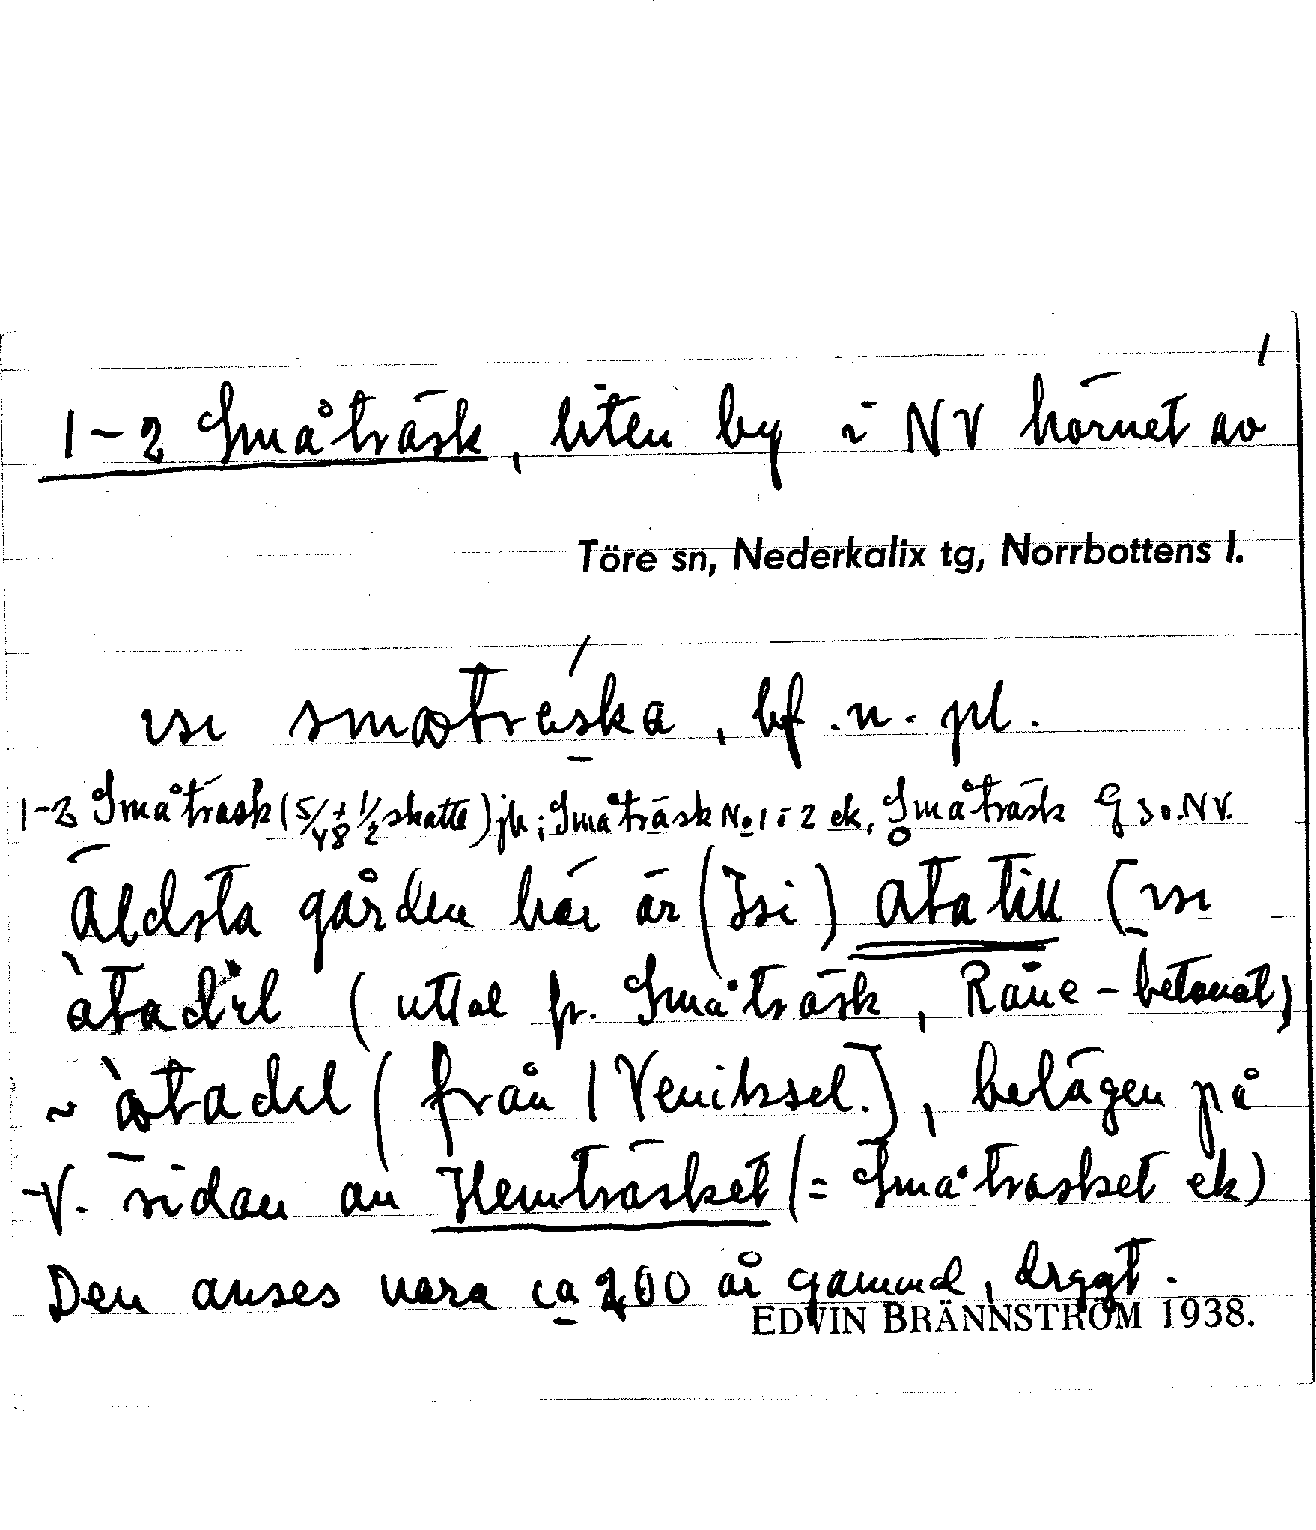 1
1-2 Småträsk, liten by i NV hörnet av
Töre sn, Nederkalix tg, Norrbottens l.
ɪsɪ smøtrèska, bf. n. pl.
1-2 Småträsk (5/48 + 1/2 skatte) jb; Småträsk No 1 o 2 ek. Småträsk G 3 o. NV.
Äldsta gården här är (Isi) Atatill (ɪsɪ
àtadɪl (uttal fr. Småträsk, Råne – betonat)
~ àtadɪl (från 1 Veniksel.), belägen på
V. sidan av Hemträsket (= Småträsket ek)
Den anses vara ca 200 år gammal, drygt.
EDVIN BRÄNNSTRÖM 1938.